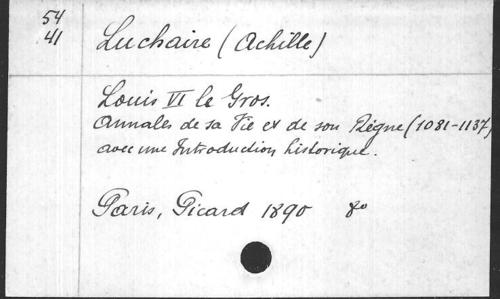 54
41
Luchaire (Achille)
Louis VI le Gros.
Annales de sa Vie et de son Règne (1081-1137)
avec une Introduction historique.
Paris, Picard 1890 8o